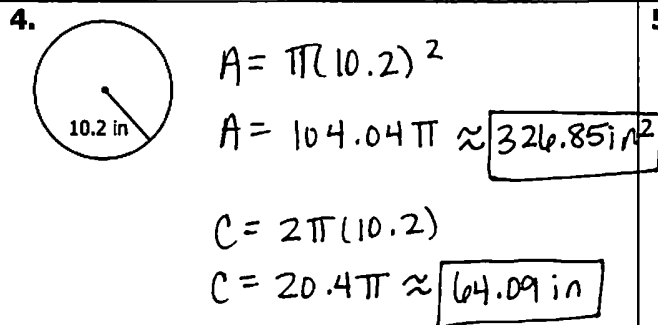 4.
10.2 in
A = π(10.2)²
A = 104.04π ≈ 326.85in²
C = 2π(10.2)
C = 20.4π ≈ 64.09 in